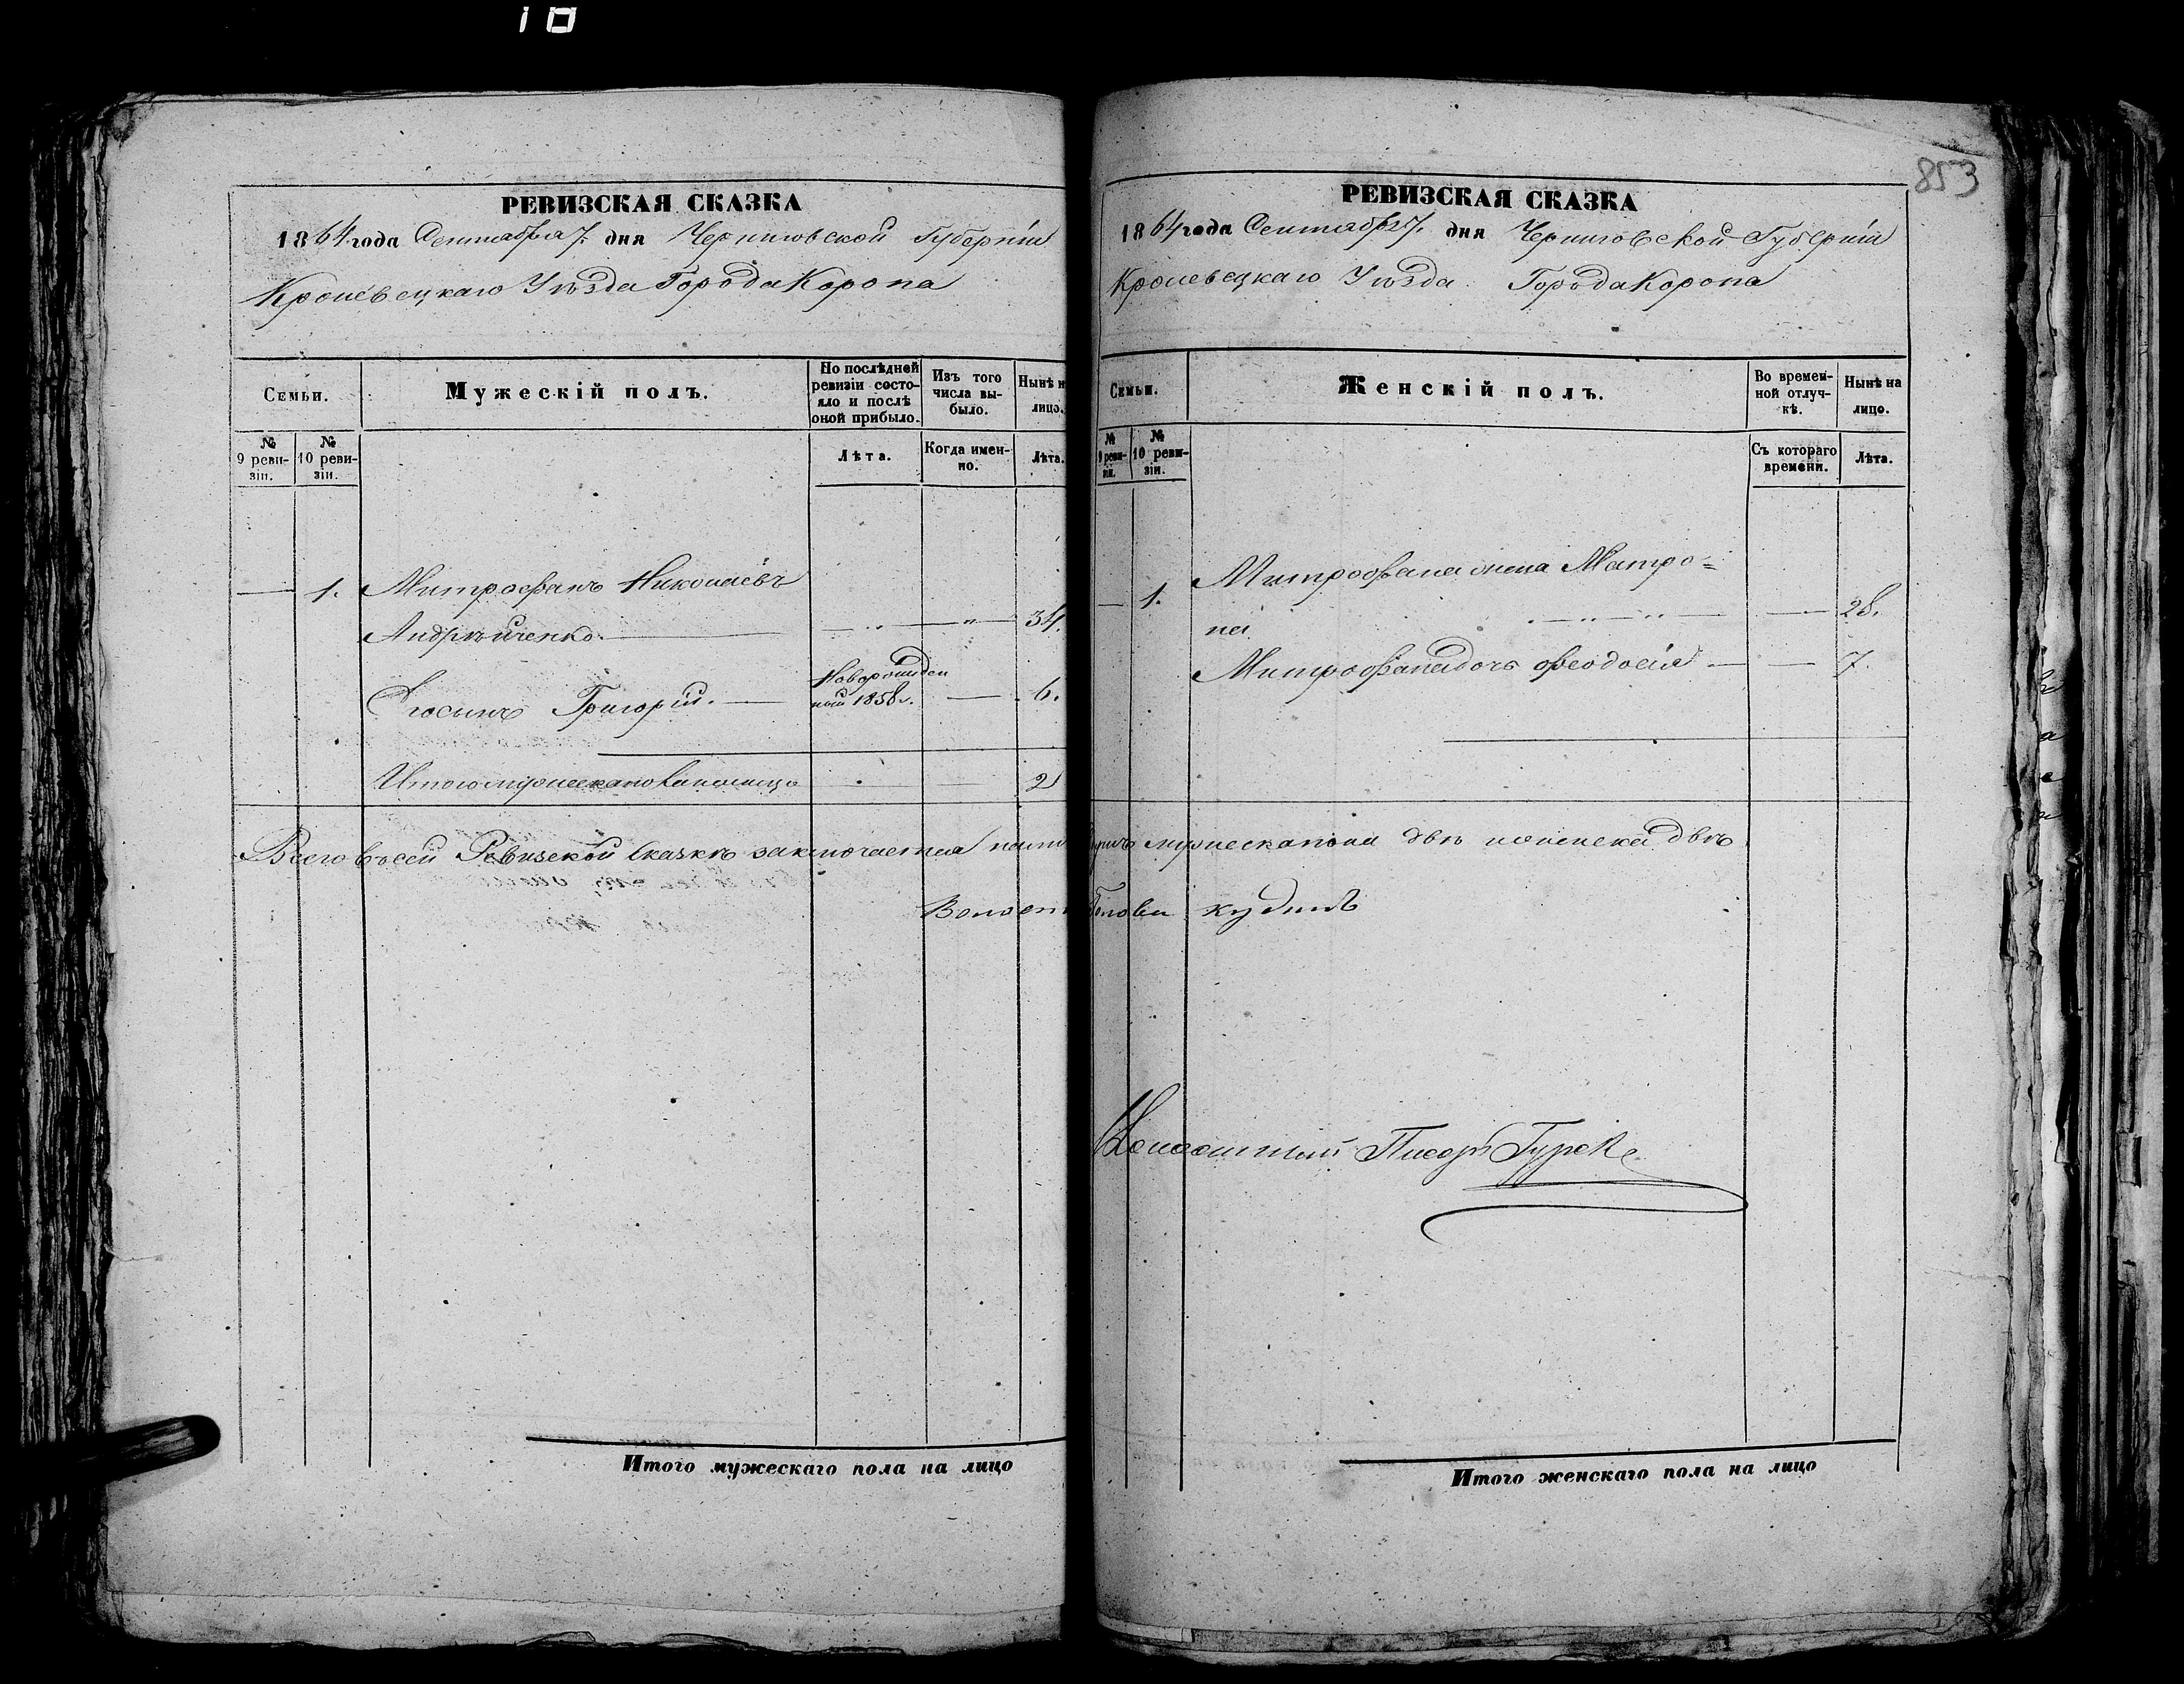 10
РЕВИЗСКАЯ СКАЗКА
1864 года Сентября 7. дня Черниговской Губерніи
Кролевецкаго Уѣзда Города Коропа
Семьи.
Мужескій полъ.
По послѣдней ревизіи состояло и послѣ оной прибыло.
Изъ того числа выбыло.
Нынѣ н лицо.
№ 9 ревизіи.
№ 10 ревизіи.
Лѣта.
Когда именно.
Лѣта.
1. Митрофанъ Николаевъ
Андрѣйченко 34.
Новорожден
Егосынъ Григорій. ный 1858 г. 6.
Итого мужеска пола налицо 2
Всего въ сей Ревизской Сказкѣ заключается
Итого мужескаго пола на лицо
853
РЕВИЗСКАЯ СКАЗКА
1864 года Сентября 7. дня Черниговской Губерніи
Кролевецкаго Уѣзда Города Коропа
Семьи.
Женскій полъ.
Во временной отлучкѣ.
Нынѣ на лицо.
№ 9 ревизіи.
№ 10 ревизіи.
Съ котораго времени.
Лѣта.
1. Митрофана жена Матро=
на 28.
Митрофана дочь Феодосія 7.
душъ мужеска пола двѣ и женска двѣ
Волост Голова Кудинъ
Волостный Писарь
Итого женскаго пола на лицо